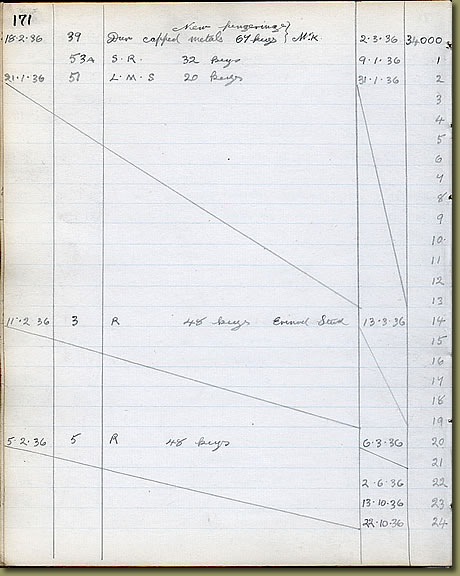 171
New fingerings
18·2·36 39 capped metals 67 keys } M.K 2·3·36 34000
53A S·R· 32 keys 9·1·36 1
21·1·36 51 L·M·S 20 keys 31·1·36 2
3
4
5
6
7
8
9
10
11
12
13
11·2·36 3 R 48 keys 13·3·36 14
15
16
17
18
19
5·2·36 5 R 48 keys 6·3·36 20
21
2·6·36 22
13·10·36 23
22·10·36 24